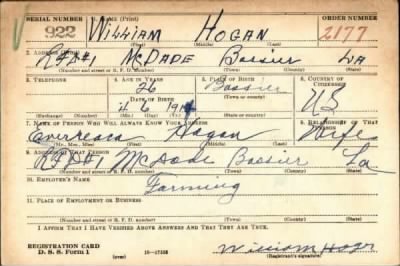 SERIAL NUMBER 1. NAME (Print) ORDER NUMBER
922 WILLIAM HOGAN 2177
(First) (Middle) (Last)
2. ADDRESS (Print)
RFD#1 McDADE Bossier LA
(Number and street or R. F. D. number) (Town) (County) (State)
3. TELEPHONE 4. AGE IN YEARS 5. PLACE OF BIRTH 6. COUNTRY OF CITIZENSHIP
26 Bossier
DATE OF BIRTH (Town or county) U S
4 6 1914
(Exchange) (Number) (Mo.) (Day) (Yr.) (State or country)
7. NAME OF PERSON WHO WILL ALWAYS KNOW YOUR ADDRESS 8. RELATIONSHIP OF THAT PERSON
Hogan Wife
(Mr., Mrs., Miss) (First) (Middle) (Last)
9. ADDRESS OF THAT PERSON
RFD#1 McDade Bossier La
(Number and street or R. F. D. number) (Town) (County) (State)
10. EMPLOYER'S NAME
Farming
11. PLACE OF EMPLOYMENT OR BUSINESS
(Number and street or R. F. D. number) (Town) (County) (State)
I AFFIRM THAT I HAVE VERIFIED ABOVE ANSWERS AND THAT THEY ARE TRUE.
REGISTRATION CARD
D. S. S. Form 1 (over) William Hogan
(Registrant's signature)